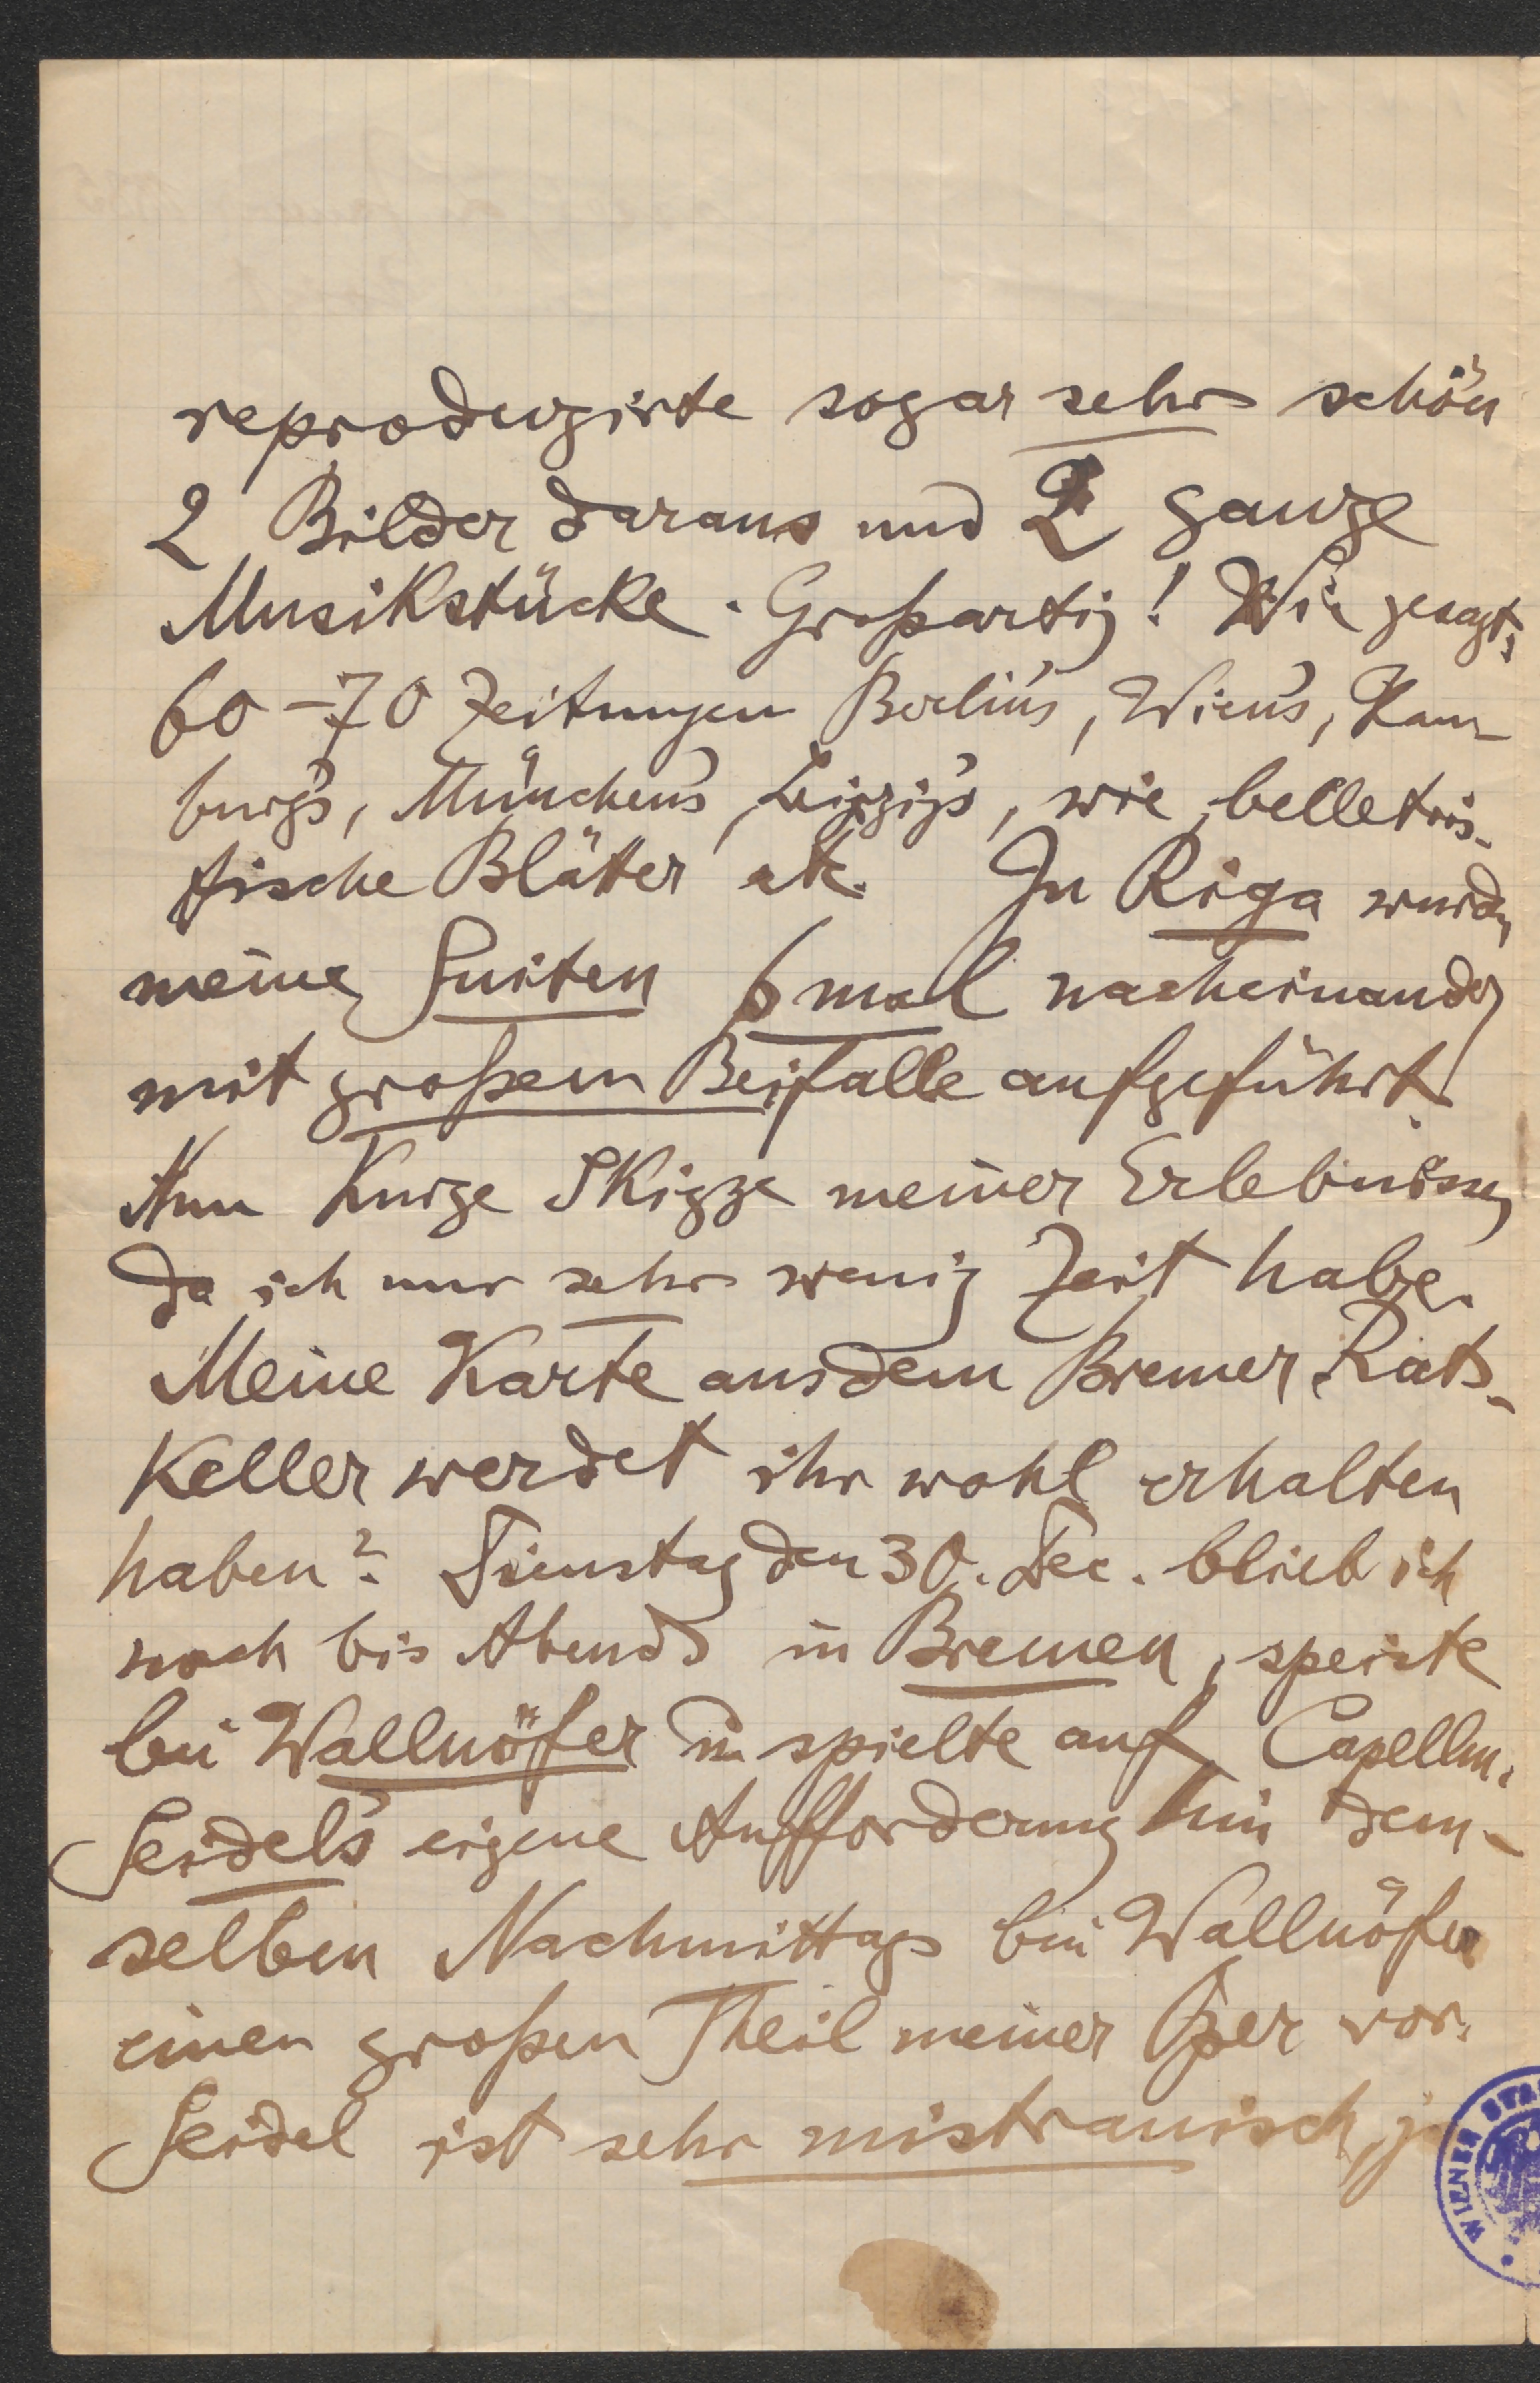 reproduzirte sogar sehr schön
2 Bilder daraus und 2 ganze
Musikstücke. Großartig! Wie gesagt,
60–70 Zeitungen Berlin's, Wien's, Ham-
burg's, München's, Leipzig's, wie belletris-
tische Blätter etc. In Riga wurden
meine Suiten 6 mal nacheinander
mit großem Beifalle aufgeführt.
Nun Kurze Skizze meiner Erlebnisse,
da ich nur sehr wenig Zeit habe.
Meine Karte aus dem Bremer Rats-
Keller werdet ihr wohl erhalten
haben? Dienstag den 30. Dec. blieb ich
noch bis Abends in Bremen, speiste
bei Wallnöfer u. spielte auf Capellm.
Seidel's eigene Aufforderung hin dem-
selben Nachmittags bei Wallnöfer
einen großen Theil meiner Oper vor.
Seidel ist sehr mistrauisch, ja
WIENER STA